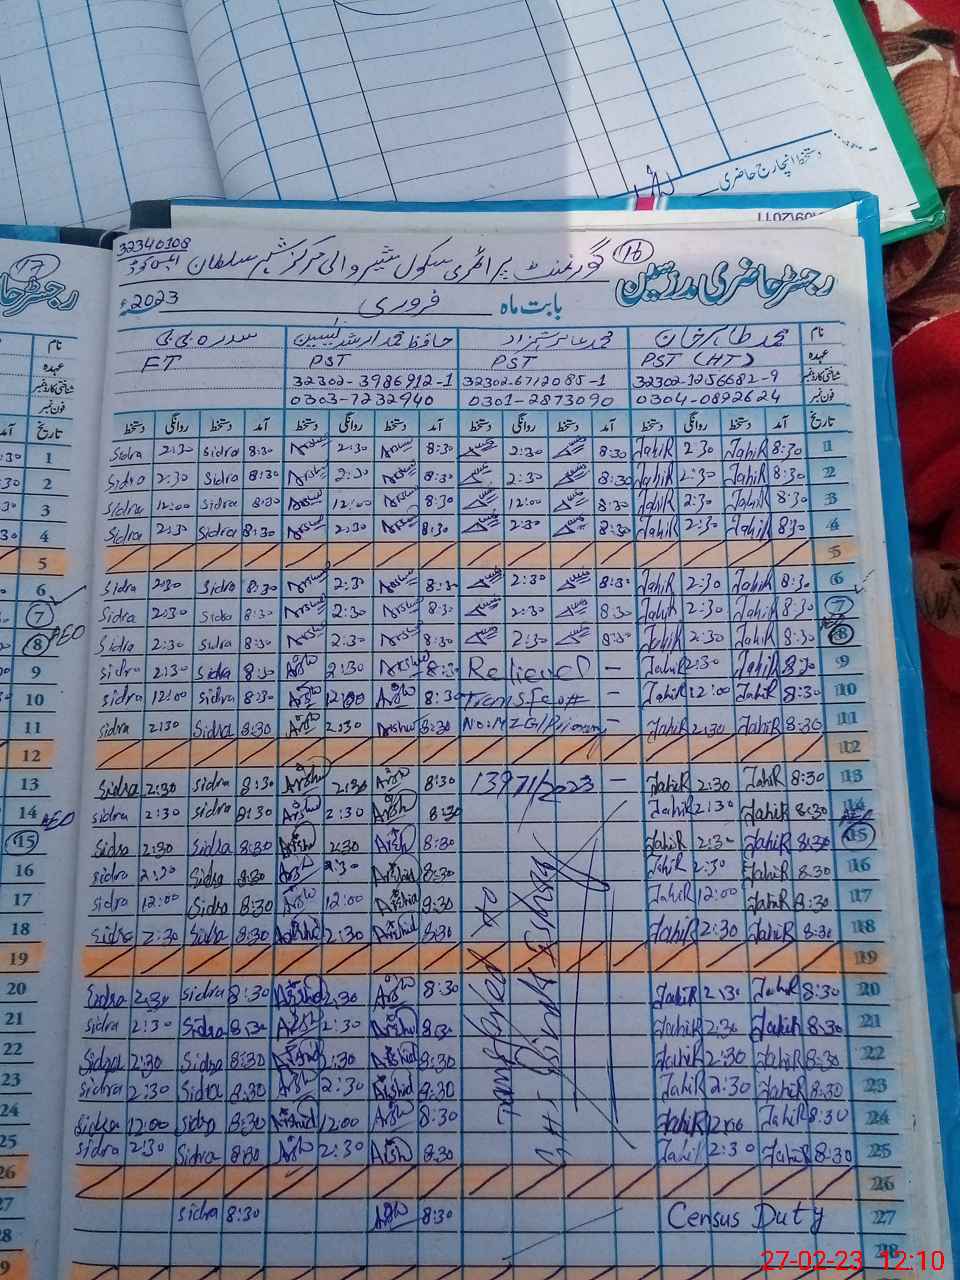 دستخط انچارج حاضری
32340108
گورنمنٹ پرائمری سکول شیر والی مرکز شہر سلطان
16
17
رجسٹر حاضری مدرسین
بابت ماہ فروری 2023ء
نام محمد طاہر خان محمد عامر شہزاد حافظ محمد ارشد یٰسین سدرہ بی بی
عہدہ PST (HT) PST PST ET
شناختی کارڈ نمبر 32302-1256682-9 32302-6712085-1 32302-3986912-1
فون نمبر 0304-0892624 0301-2873090 0303-7232940
تاریخ آمد دستخط روانگی دستخط آمد دستخط روانگی دستخط آمد دستخط روانگی دستخط آمد دستخط روانگی دستخط
1 8:30 Tahir 2:30 Tahir 8:30 2:30 8:30 Arshad 2:30 Arshad 8:30 Sidra 2:30 Sidra
2 8:30 Tahir 2:30 Tahir 8:30 2:30 8:30 Arshad 2:30 Arshad 8:30 Sidra 2:30 Sidra
3 8:30 Tahir 2:30 Tahir 8:30 12:00 8:30 Arshad 12:00 Arshad 8:30 Sidra 12:00 Sidra
4 8:30 Tahir 2:30 Tahir 8:30 2:30 8:30 Arshad 2:30 Arshad 8:30 Sidra 2:30 Sidra
5
6 8:30 Tahir 2:30 Tahir 8:30 2:30 8:30 Arshad 2:30 Arshad 8:30 Sidra 2:30 Sidra
7 8:30 Tahir 2:30 Tahir 8:30 2:30 8:30 Arshad 2:30 Arshad 8:30 Sidra 2:30 Sidra
8 8:30 Tahir 2:30 Tahir 8:30 2:30 8:30 Arshad 2:30 Arshad 8:30 Sidra 2:30 Sidra AEO
9 8:30 Tahir 2:30 Tahir – Relieved 8:30 Arshad 2:30 Arshad 8:30 Sidra 2:30 Sidra
10 8:30 Tahir 12:00 Tahir – 8:30 Arshad 12:00 Arshad 8:30 Sidra 12:00 Sidra
11 8:30 Tahir 2:30 Tahir – 8:30 Arshad 2:30 Arshad 8:30 Sidra 2:30 Sidra
12
13 8:30 Tahir 2:30 Tahir – 1397/2023 8:30 Arshad 2:30 Arshad 8:30 Sidra 2:30 Sidra
14 8:30 Tahir 2:30 Tahir 8:30 Arshad 2:30 Arshad 8:30 Sidra 2:30 Sidra
AEO
15 8:30 Tahir 2:30 Tahir 8:30 Arshad 2:30 Arshad 8:30 Sidra 2:30 Sidra
16 8:30 Tahir 2:30 Tahir 8:30 Arshad 2:30 Arshad 8:30 Sidra 2:30 Sidra
17 8:30 Tahir 12:00 Tahir 8:30 Arshad 12:00 Arshad 8:30 Sidra 12:00 Sidra
18 8:30 Tahir 2:30 Tahir 8:30 Arshad 2:30 Arshad 8:30 Sidra 2:30 Sidra
19
Transfered to
20 8:30 Tahir 2:30 Tahir 8:30 Arshad 2:30 Arshad 8:30 Sidra 2:30 Sidra
21 8:30 Tahir 2:30 Tahir 8:30 Arshad 2:30 Arshad 8:30 Sidra 2:30 Sidra
22 8:30 Tahir 2:30 Tahir 8:30 Arshad 2:30 Arshad 8:30 Sidra 2:30 Sidra
23 8:30 Tahir 2:30 Tahir 8:30 Arshad 2:30 Arshad 8:30 Sidra 2:30 Sidra
24 8:30 Tahir 12:00 Tahir 8:30 Arshad 12:00 Arshad 8:30 Sidra 12:00 Sidra
25 8:30 Tahir 2:30 Tahir 8:30 Arshad 2:30 Arshad 8:30 Sidra 2:30 Sidra
26
27 Census Duty 8:30 Arshad 8:30 Sidra
28
27-02-23 12:10